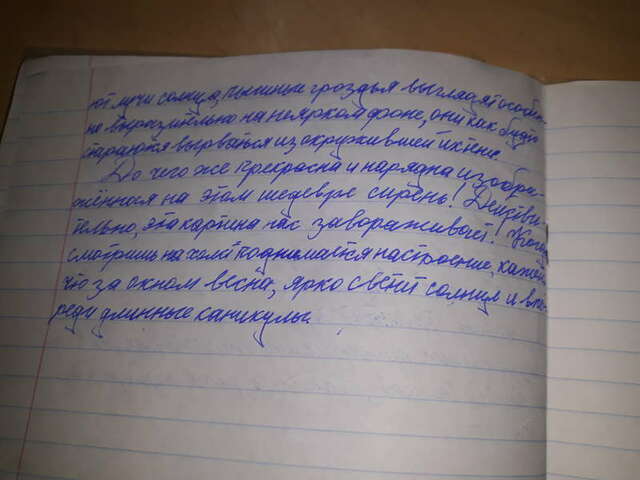 ют лучи солнца, пышные гроздья выглядят особен
но выразительно на неярком фоне, они как будто
стараются вырваться из окружившей их тени.
До чего же прекрасна и нарядна изобра-
жённая на этом шедевре сирень! Действи-
тельно, эта картина нас завораживает! Когда
смотришь на холст поднимается настроение, кажется
что за окном весна, ярко светит солнце и впе-
реди длинные каникулы.